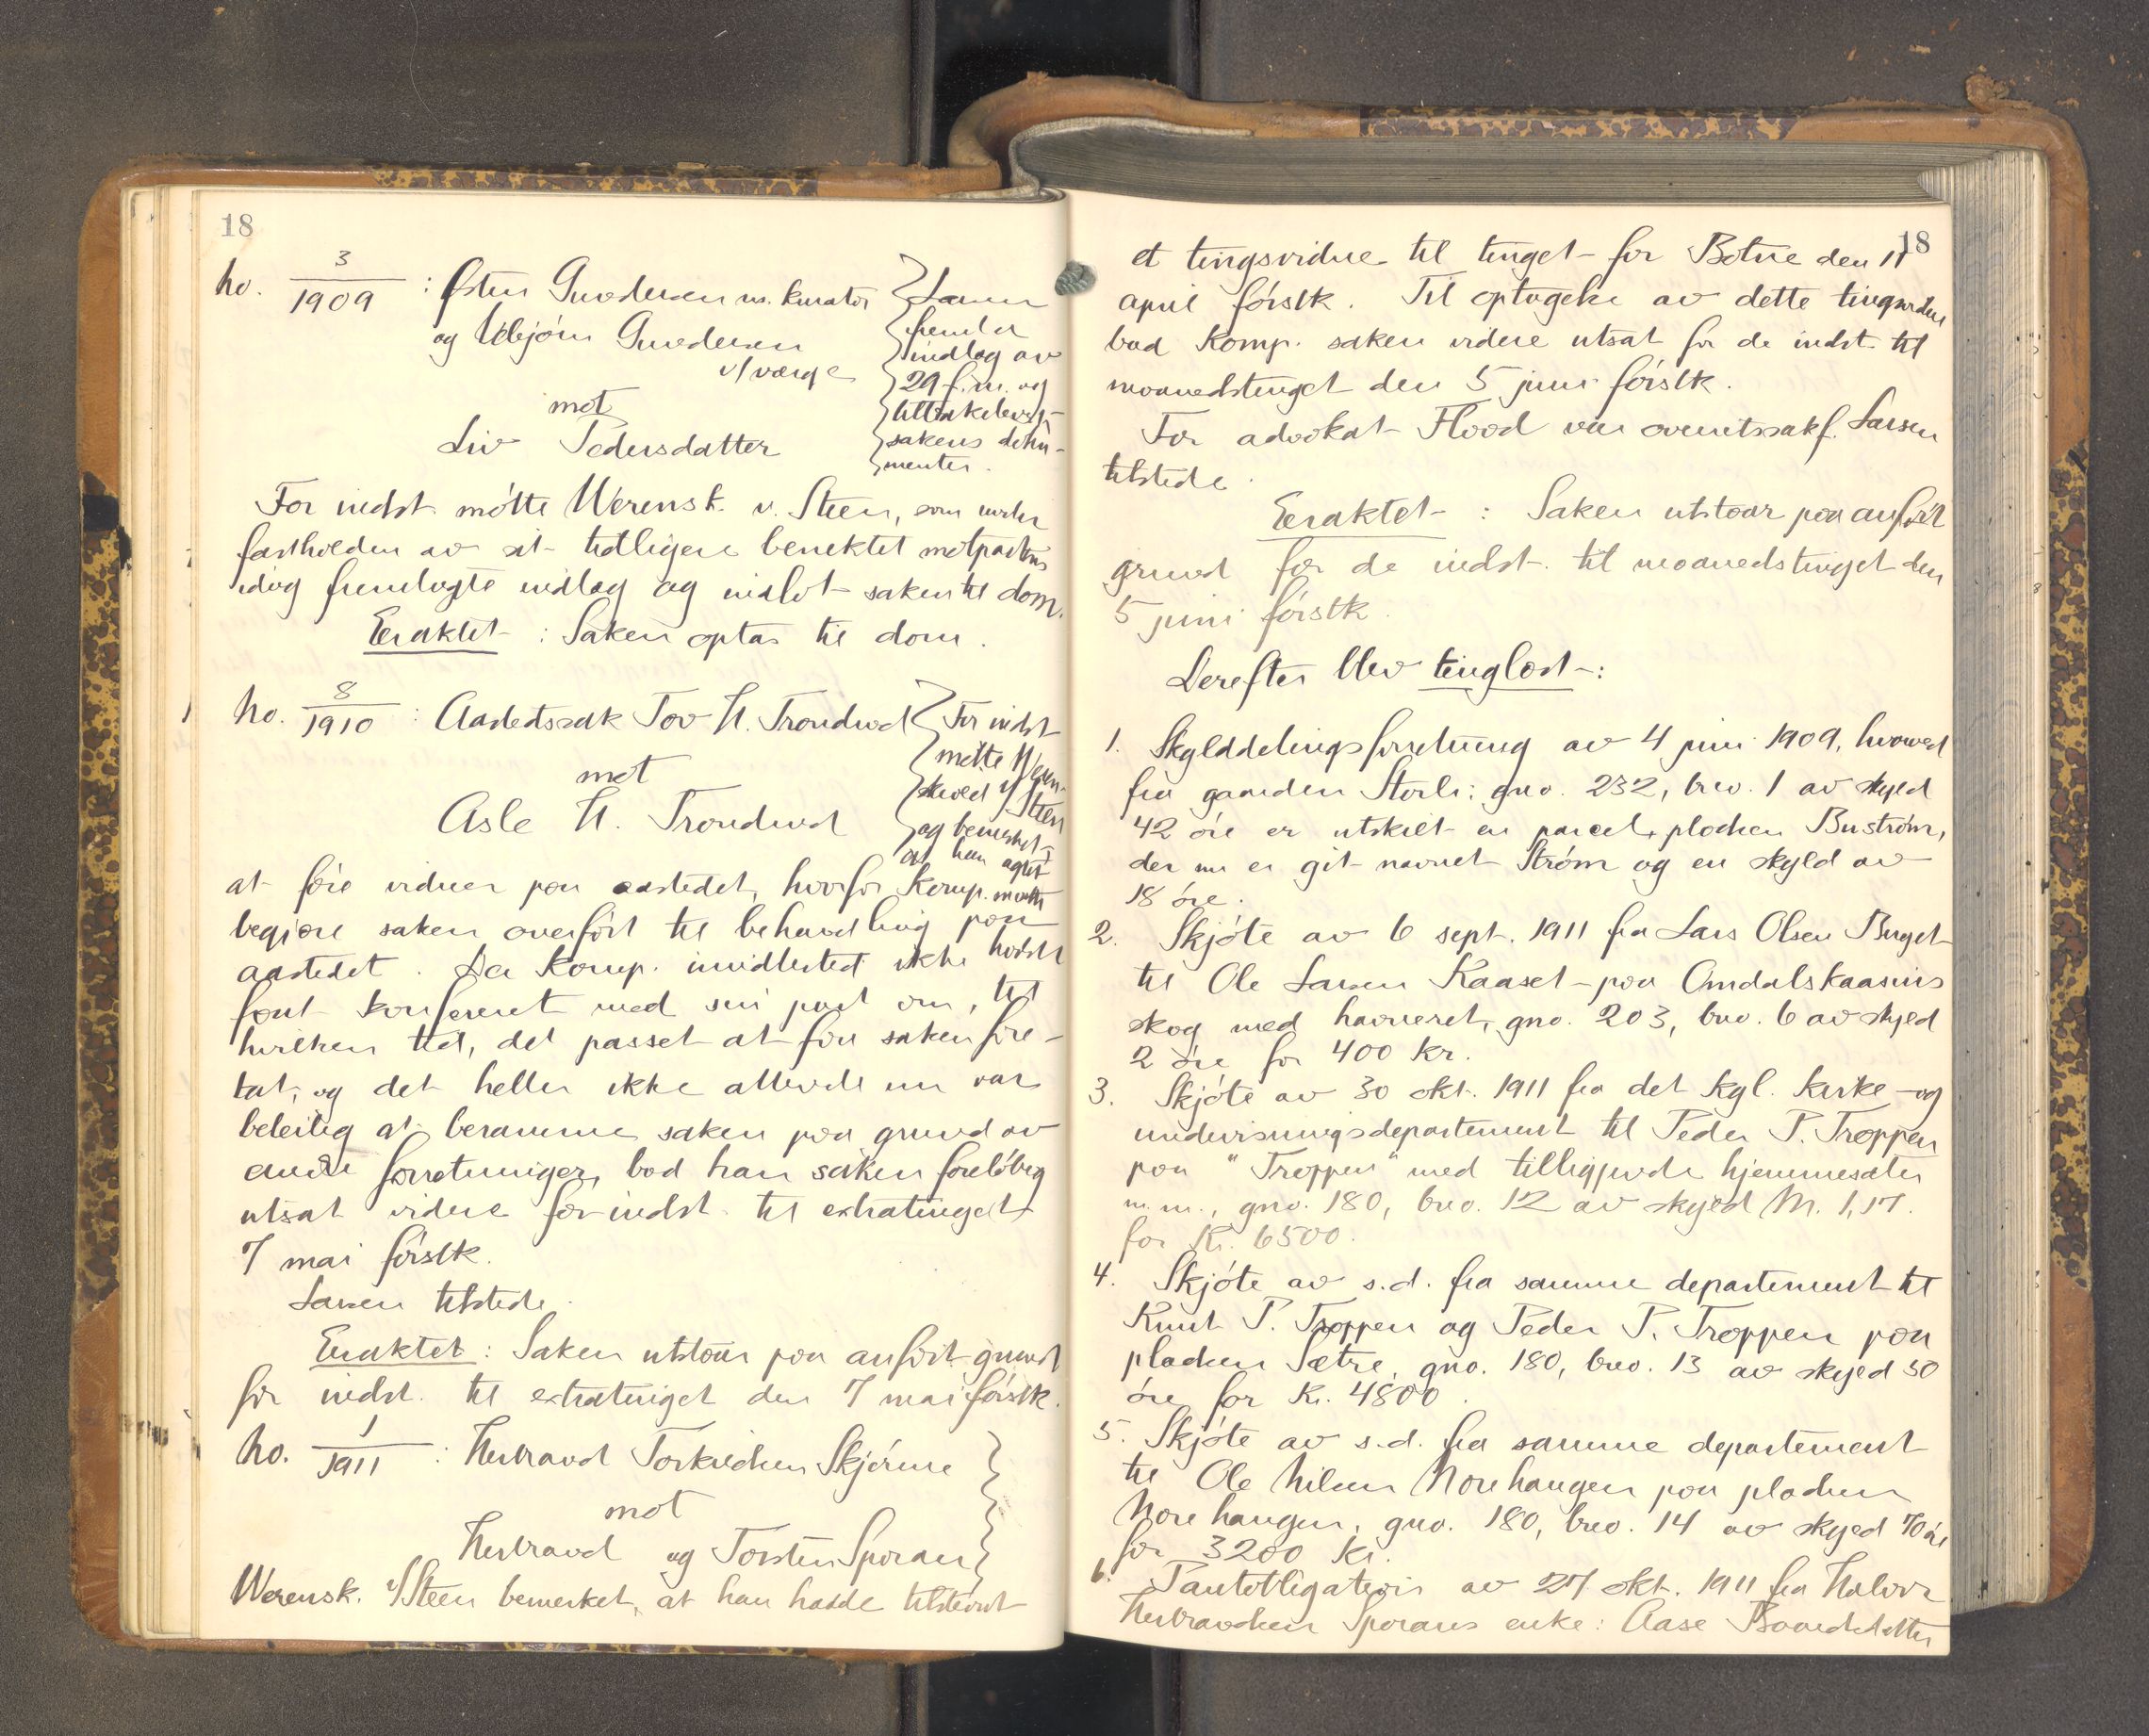 18
No. 3/1909 : Østen Gundersen m. kurator
og Vebjörn Gundersen
v/ værge
mot
Liv Pedersdatter
Larsen
fremla
indlæg av
29 f.m. og
tilbakelev.
sakens doku-
menter.
For indst. mötte Werensk. v. Steen, som under
fastholden av sit tidligere benektet motpartens
idag fremlagte indlæg og indlot saken til dom.
Eraktet : Saken optas til dom.
No. 8/1910 : Aastedssak Tov H. Trondrud
mot
Asle H. Trondrud
For indst
mötte Weren-
skiold v/ Steen
og bemerket,
at han agtet
at före vidner paa aastedet, hvorfor komp. maatte
begjære saken overfört til behandling paa
aastedet. Da komp. imidlertid ikke hadde
faat konfereret med sin part om, til
hvilken tid, det passet at faa saken fore-
tat, og det heller ikke allerede nu var
beleilig at beramme saken paa grund av
andre forretninger, bad han saken forelöbig
utsat videre for indst. til extratinget
7 mai förstk.
Larsen tilstede.
Eraktet : Saken utstaar paa anfört grund
for indst. til extratinget den 7 mai förstk.
No. 1/1911 : Herbrand Torkildsen Skjönne
mot
Herbrand og Torsten Sporan
Werensk. v/ Steen bemerket, at han hadde tilstevnt
18
et tingsvidne til tinget for Botne den 11
april förstk. Til optagelse av dette tingsvidne
bad komp. saken videre utsat for de indst. til
maanedstinget den 5 juni förstk.
For advokat Flood var overretssakf. Larsen
tilstede.
Eraktet : Saken utstaar paa anfört
grund for de indst. til maanedstinget den
5 juni förstk.
Derefter blev tinglæst :
1. Skylddelingsforretning av 4 juni 1909, hvorved
fra gaarden Storli: gno. 232, bno. 1 av skyld
42 öre er utskilt en parcel, pladsen Buström,
der nu er git navnet Ström og en skyld av
18 öre.
2. Skjöte av 6 sept. 1911 fra Lars Olsen Buget
til Ole Larsen Kaaset paa Omdalskaasens
skog med havneret, gno. 203, bno. 6 av skyld
2 öre for 400 kr.
3. Skjöte av 30 okt. 1911 fra det kgl. kirke- og
undervisningsdepartement til Peder P. Troppen
paa "Troppen" med tilliggende hjemmesæter
m.m., gno. 180, bno. 12 av skyld M. 1,17.
for Kr. 6500.
4. Skjöte av s.d. fra samme departement til
Knut P. Troppen og Peder P. Troppen paa
pladsen Sætre, gno. 180, bno. 13 av skyld 50
öre for Kr. 4800.
5. Skjöte av s.d. fra samme departement
til Ole Nilsen Norehaugen paa pladsen
Norehaugen, gno. 180, bno. 14 av skyld 70 öre
for 3200 Kr.
6. Pantobligation av 27 okt. 1911 fra Halvor
Herbrandsen Sporans enke: Aase Baardsdatter